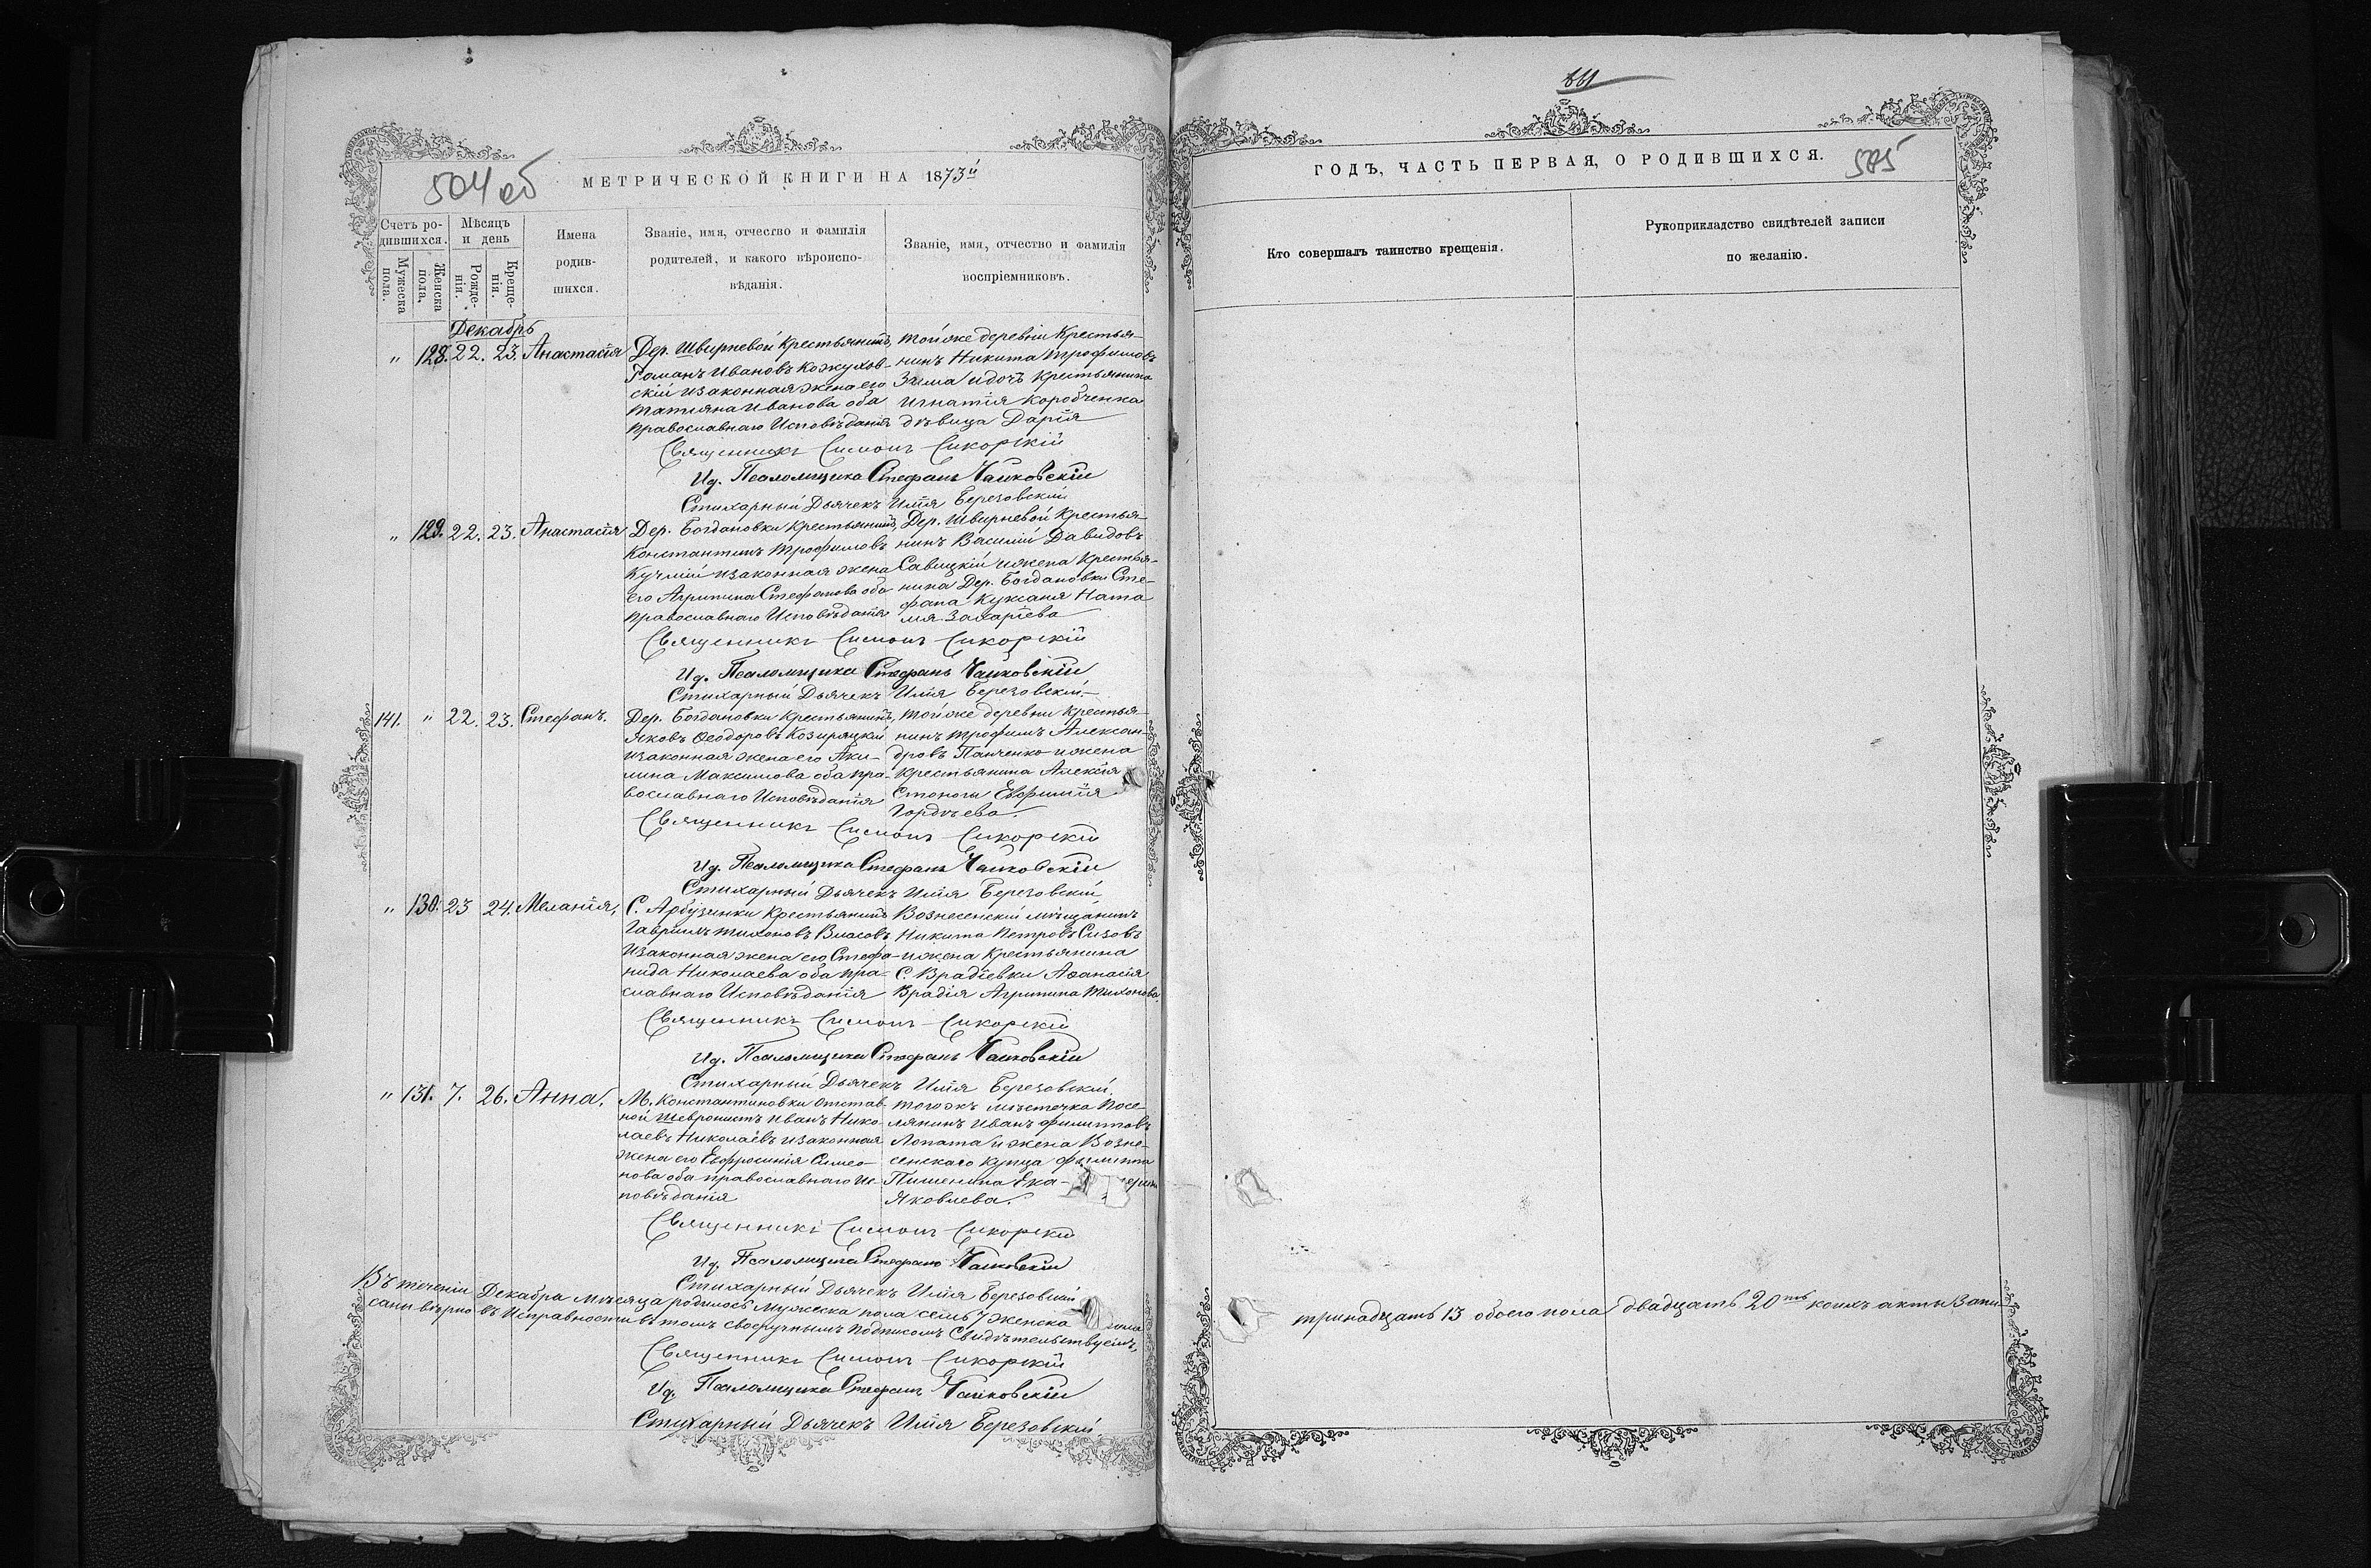 504 об
МЕТРИЧЕСКОЙ КНИГИ НА 1873й
Счетъ родившихся.
Мѣсяцъ и день
Имена родившихся.
Званіе, имя, отчество и фамилія родителей, и какого вѣроисповѣданія.
Званіе, имя, отчество и фамилія воспріемниковъ.
Мужеска пола.
Женска пола.
Рожденія.
Крещенія.
Декабрь
" 128. 22. 23. Анастасія
Дер. Швирневой Крестьянинъ,
Романъ Ивановъ Кожухов-
скій изаконная жена его
Татіяна Иванова оба
православнаго Исповѣданія
Тойже деревни Крестья-
нинъ Никита Трофимовъ
Зима идочь Крестьянина
Игнатія Коробченка
дѣвица Дарія
Священникъ Симонъ Сикорскій
Ид. Псаломщика Стефанъ Чайковскій
Стихарный Дьячекъ Илія Березовскій
" 129. 22. 23. Анастасія
Дер. Богдановки Крестьянинъ,
Константинъ Трофимовъ
Кучмій изаконная жена
его Агрипина Стефанова оба
православнаго Исповѣданія
Дер. Швирневой Крестья-
нинъ Василій Давидовъ
Савицкій ижена Крестья-
нина Дер. Богдановки Сте-
фана Куксаня Ната
лія Захаріева
Священникъ Симонъ Сикорскій
Ид. Псаломщика Стефанъ Чайковскій
Стихарный Дьячекъ Илія Березовскій.
141. " 22. 23. Стефанъ.
Дер. Богдановки Крестьянинъ,
Яковъ Ѳеодоровъ Козиряцкій
изаконная жена его Аки-
лина Максимова оба пра-
вославнаго Исповѣданія
Тойже деревни Крестья-
нинъ Трофимъ Алексан-
дровъ Панченко ижена
Крестьянина Алексія
Стоноги Евфимія
Гордѣева.
Священникъ Симонъ Сикорскій
Ид. Псаломщика Стефанъ Чайковскій
Стихарный Дьячекъ Илія Березовскій,
" 130. 23 24. Меланія,
С. Арбузинки Крестьянинъ
Гавриилъ Тихоновъ Власовъ
Изаконная жена его Стефа-
нида Николаева оба пра-
славнаго Исповѣданія
Вознесенскій мѣщанинъ
Никита Петровъ Сизовъ
ижена Крестьянина
С. Врадіевки Аѳанасія
Врадія Агрипина Тихонова
Священникъ Симонъ Сикорскій
Ид. Псаломщика Стефанъ Чайковскій
Стихарный Дьячекъ Илія Березовскій,
" 131. 7. 26. Анна.
М. Константиновки Отстав-
ной Шевронистъ Иванъ Нико-
лаевъ Николаевъ изаконная
жена его Евфросинія Симео-
нова оба православнаго Ис-
повѣданія
Тогожъ мѣстечка Посе-
лянинъ Иванъ Филиповъ
Лопата ижена Возне-
сенскаго Купца Филиппа
Пишенина Ека-
Яковлева.
Священникъ Симонъ Сикорскій
Ид. Псаломщика Стефанъ Чайковскій
Стихарный Дьячекъ Илія Березовскій
Въ теченіи Декабря мѣсяца родилось Мужеска пола семь 7 женска пола
сани вѣрно въ Исправности въ томъ своеручнымъ подписомъ Свидѣтельствуемъ,
Священникъ Симонъ Сикорскій
Ид. Псаломщика Стефанъ Чайковскій
Стихарный Дьячекъ Илія Березовскій
ГОДЪ, ЧАСТЬ ПЕРВАЯ, О РОДИВШИХСЯ.
Кто совершалъ таинство крещенія.
Рукоприкладство свидѣтелей записи
по желанію.
тринадцать 13 обоего пола двадцать 20ть коихъ акты Запи